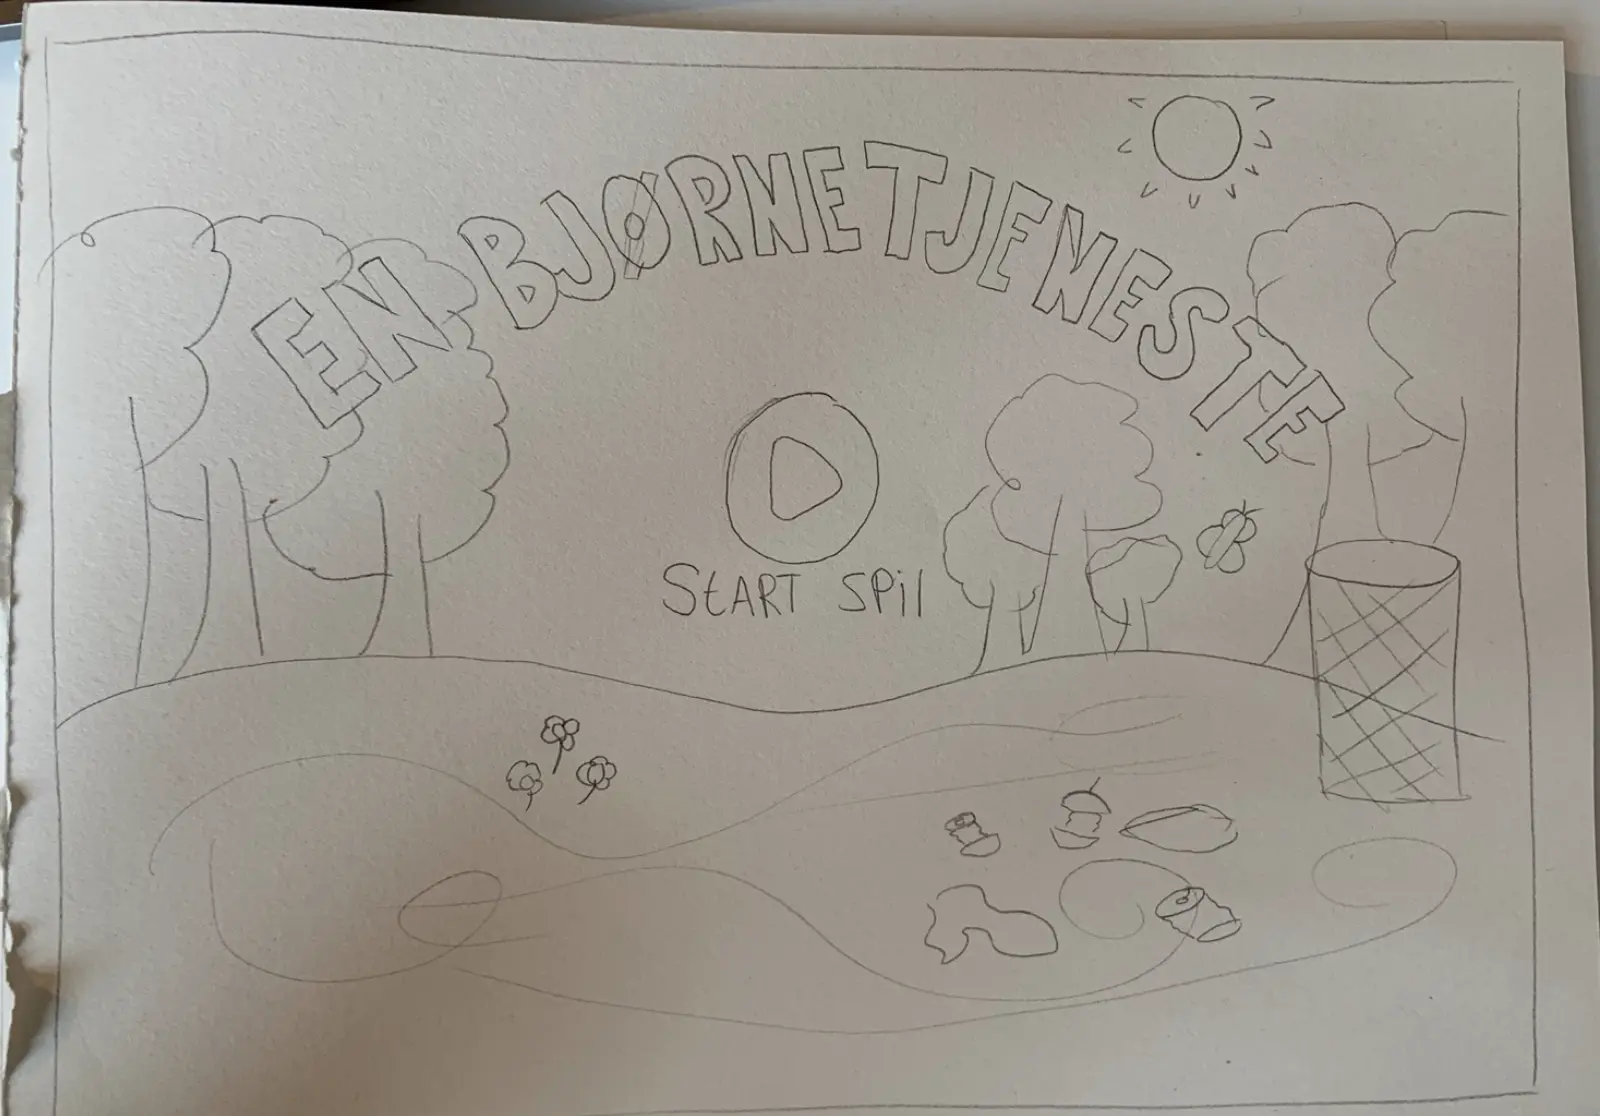 EN BJØRNETJENESTE
StART SPil